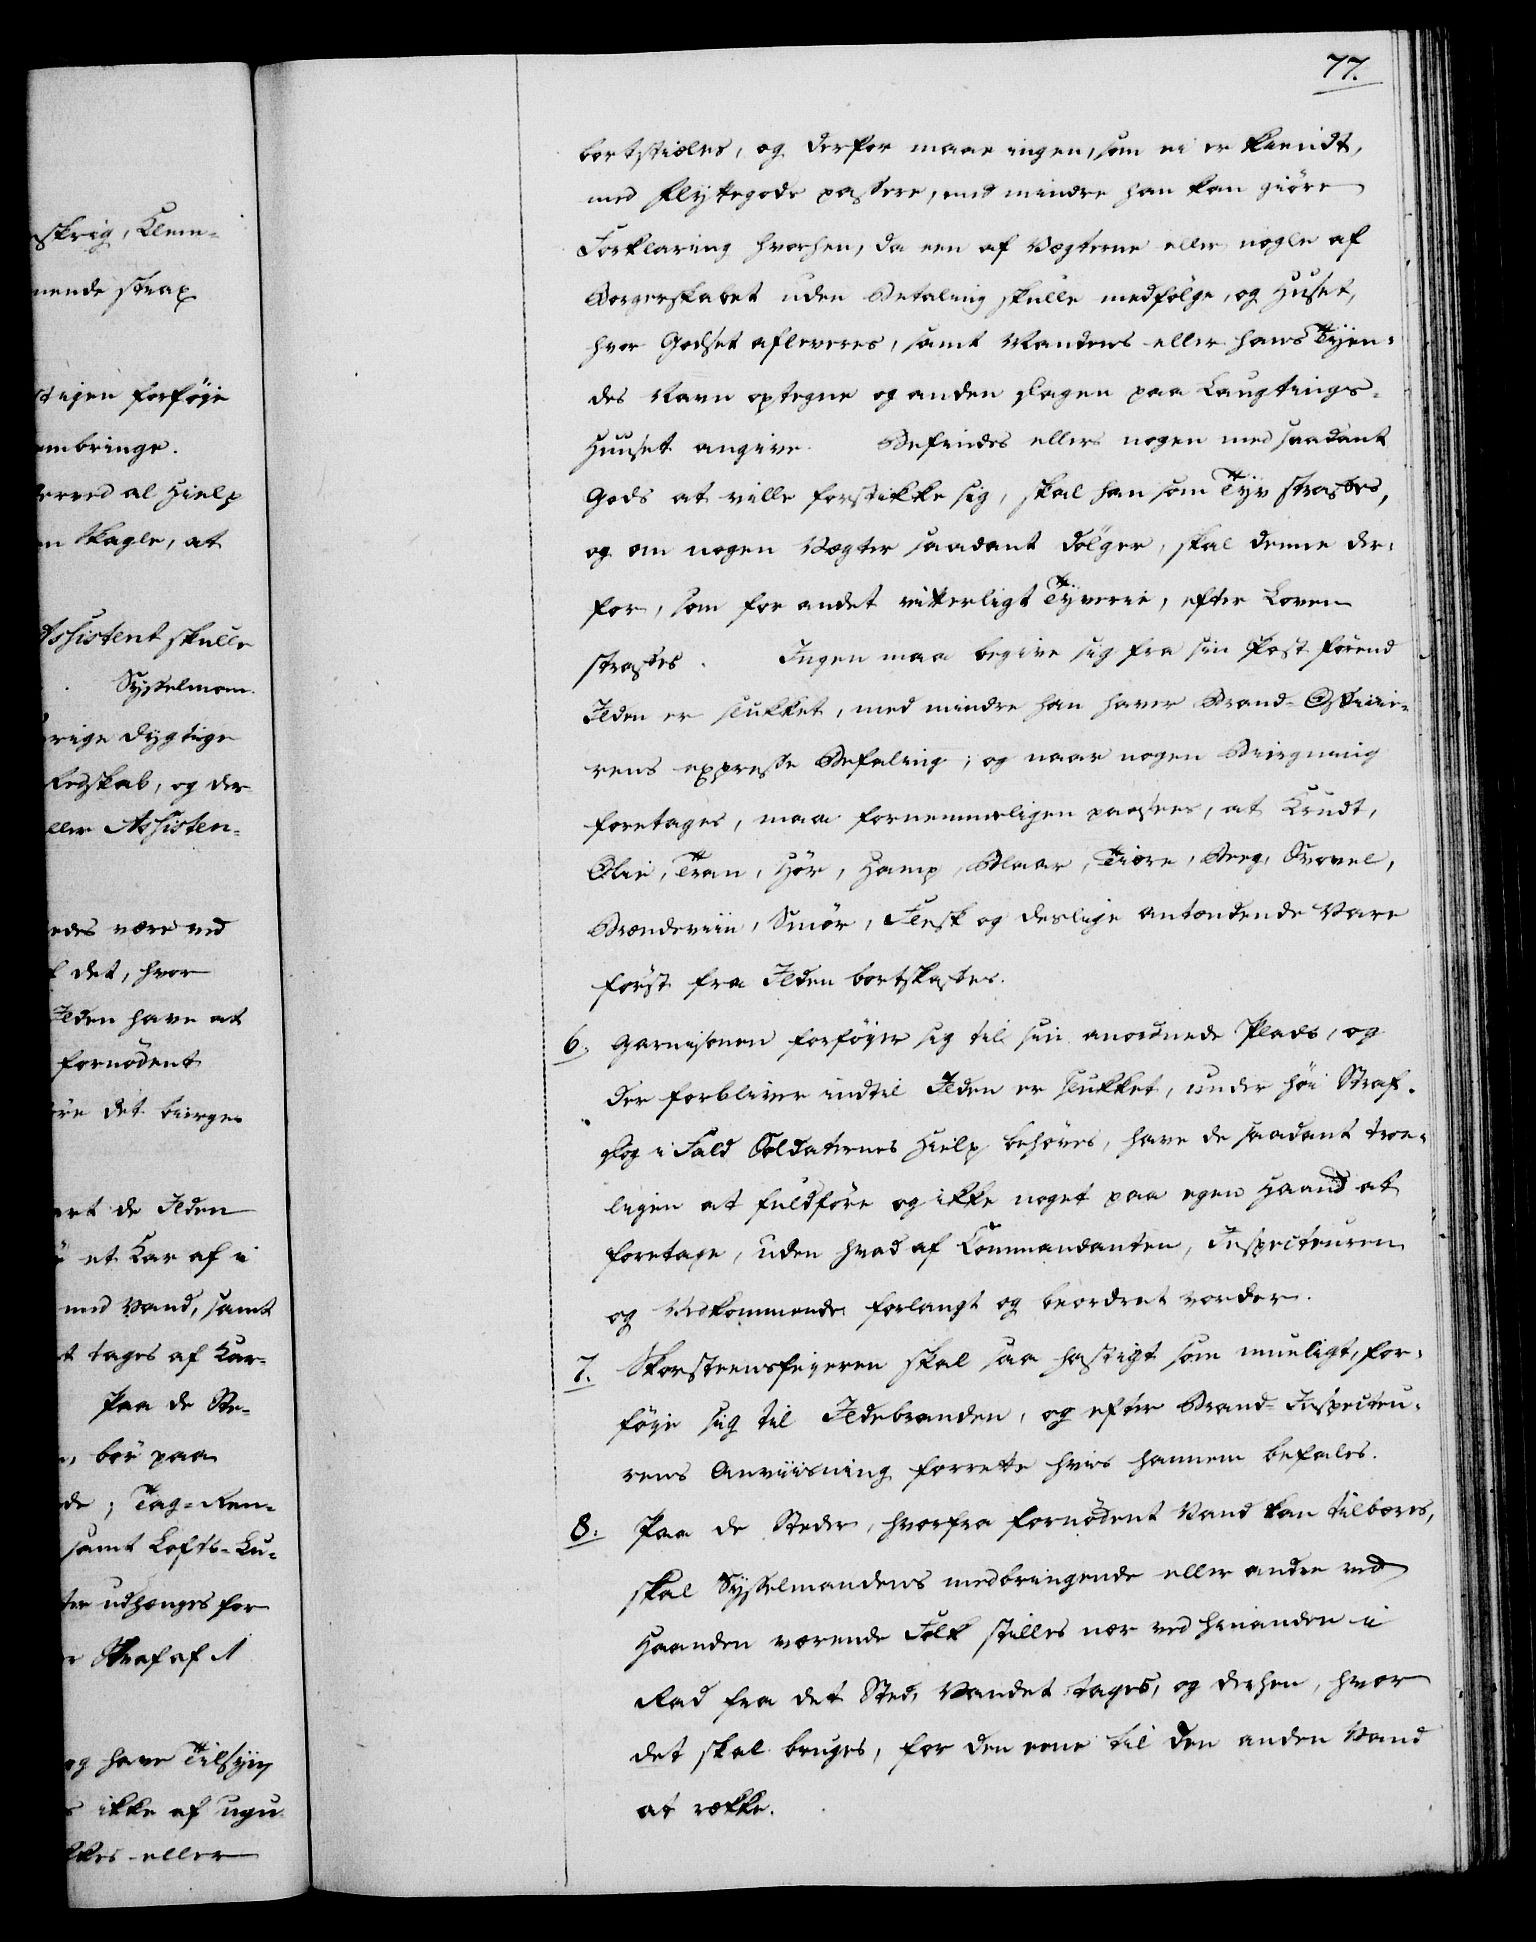 77.
bortstieles, og derfor maae ingen, som ei er kiendt,
med Flyttegods passere, mit mindre han kan giöre
Forklaring hvorhen, da een af Vægterne eller nogle af
Borgerskabet uden Betaling skulle medfölge, og Huset,
hvor Godset afleveres, samt Mandens eller hans Tyen-
des Navn optegne og anden Dagen paa Laugtings-
Huuset angive. Befindes ellers nogen med saadant
Gods at ville forstikke sig, skal han som Tyv straffes,
og om nogen Vægter saadant dölger, skal denne der-
for, som for andet vitterligt Tyverie, efter Loven
straffes. Ingen maa begive sig fra sin Post förend
Ilden er slukket, med mindre han haver Brand-Officie-
rens expresse Befaling; og naar nogen Biergning
foretages, maa fornemmeligen paasees, at Krudt,
Olie, Tran, Hör, Hamp, Blaar, Tiære, Beeg, Svovel,
Brændeviin, Smör, Flesk og deslige antændende Vare
först fra Ilden bortskaffes.
6. Garnisonen forföyer sig til sin anordnede Plads, og
der forbliver indtil Ilden er slukket, under höi Straf.
Dog i Fald Soldaternes Hielp behöves, have de saadant troe-
ligen at fuldföre og ikke noget paa egen Haand at
foretage, uden hvad af Commandanten, Inspecteuren
og Vedkommende forlangt og beordret vorder.
7. Skorsteensfeyeren skal saa hastigt som mueligt, for-
föye sig til Ildebranden, og efter Brand-Inspecteu-
rens Anviisning forrette hvis hannem befales.
8. Paa de Steder, hvorfra fornödent Vand kan tilbæres,
skal Sysselmandens medbringende eller andre ved
Haanden værende Folk stilles nær ved hinanden i
Rad fra det Sted, Vandet tages, og derhen, hvor
det skal bruges, for den eene til den anden Vand
at række.
skrig, Klem-
mende strax
igen forföje
embringe.
derved al Hielp
Skagle, at
Assistent skulle
Sysselmom.
rige dygtige
Redskab, og der
eller Assisten-
edes være ved
det, hvor
Ilden have at
fornödent
det bierge
de Ilden
et Kar af i
med Vand, samt
tages af Kar-
Paa de Ste-
bör paa
de; Tag-Ren-
samt Lofts-Lu-
udhænges for
Straf af 1
og have Tilsyn
ikke af ugu-
eller